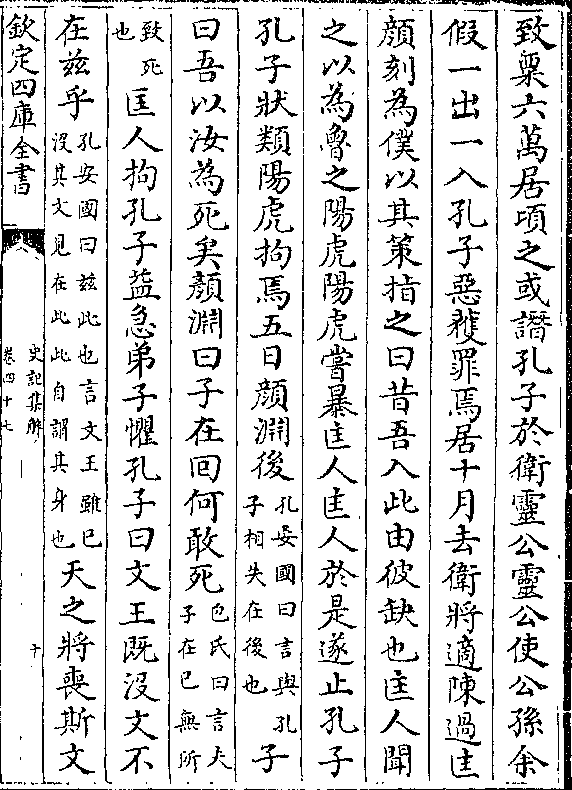 致粟六萬居頃之或譖孔子於衛靈公靈公使公孫余
假一出一入孔子惡獲罪焉居十月去衛將適陳過匡
顔刻為僕以其策指之曰昔吾入此由彼缺也匡人聞
之以為魯之陽虎陽虎嘗暴匡人匡人於是遂止孔子
孔子狀類陽虎拘焉五日顔淵後孔安國曰言與孔子相失在後也子
曰吾以汝為死矣顔淵曰子在回何敢死包氏曰言夫子在已無所
致死也匡人拘孔子益急弟子懼孔子曰文王既沒文不
在兹乎孔安國曰兹此也言文王雖已沒其文見在此此自謂其身也天之將喪斯文
欽定四庫全書
史記集解
卷四十七
十